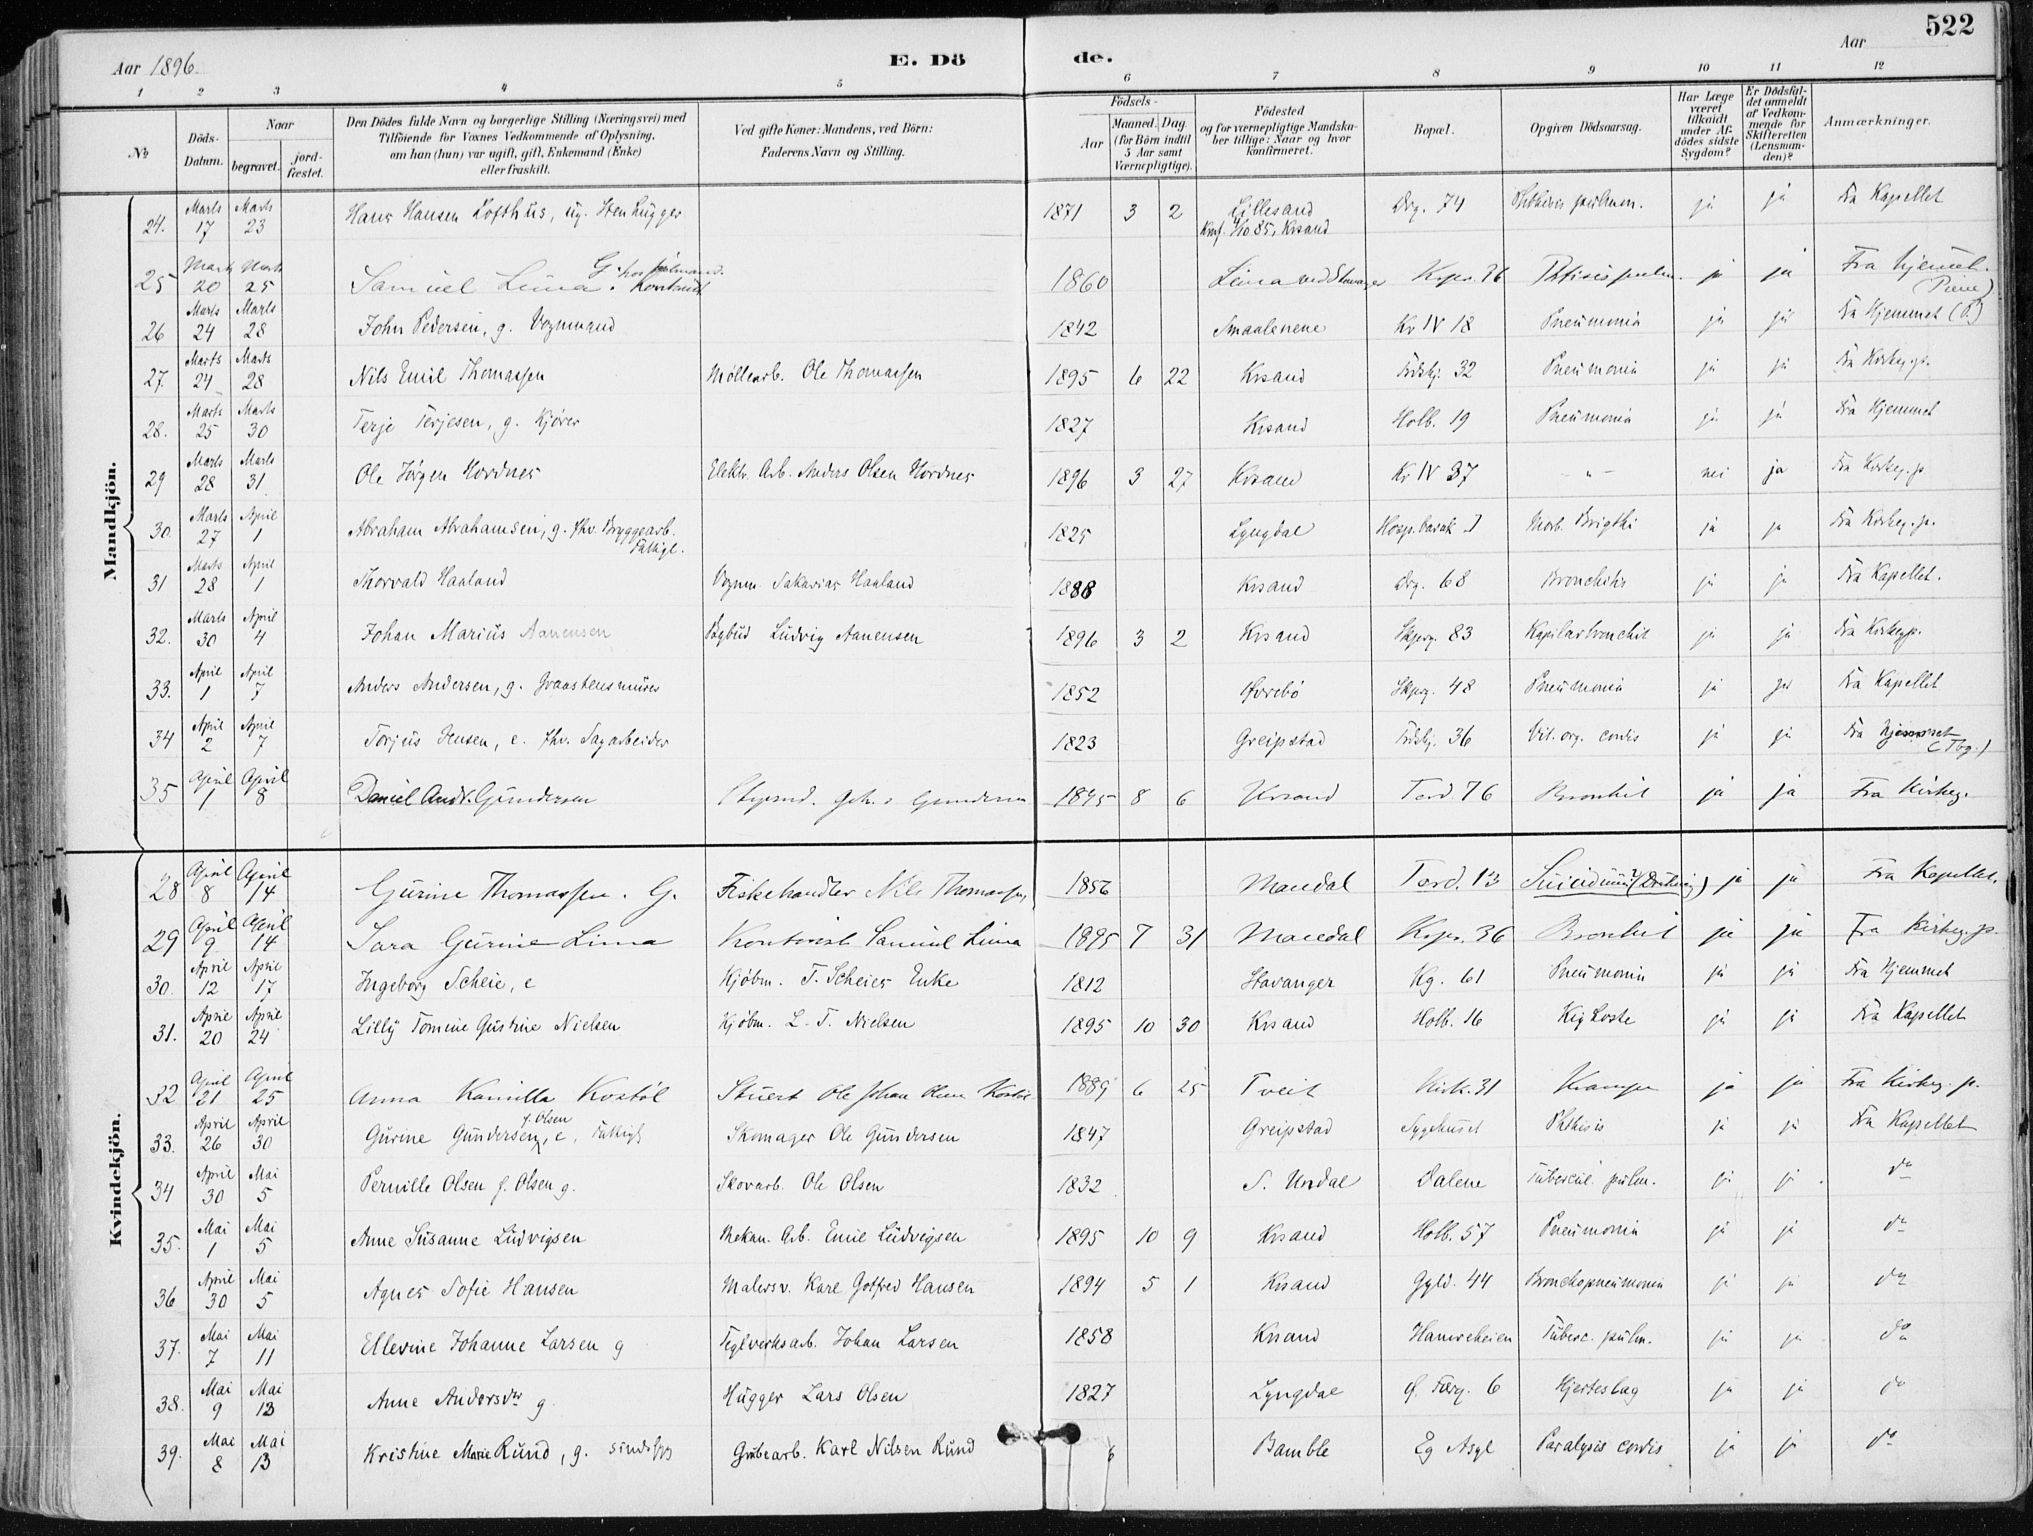 522
Aar 1896
E. Dö
de.
Aar
1 2 3 4 5 6 7 8 9 10 11 12
No
Döds-Datum.
Naar
begravet.
jord-fæstet.
Den Dödes fulde Navn og borgerlige Stilling (Næringsvei) med
Tilföiende for Voxnes Vedkommende af Oplysning,
om han (hun) var ugift, gift, Enkemand (Enke)
eller fraskilt.
Ved gifte Koner: Mandens, ved Börn:
Faderens Navn og Stilling.
Födsels-
Aar
Maaned. Dag
(for Börn indtil
5 Aar samt
Værnepligtige).
Födested
og for værnepligtige Mandska-
ber tillige: Naar og hvor
konfirmeret.
Bopæl.
Opgiven Dödsaarsag.
Har Læge
været
tilkaldt
under Af-
dödes sidste
Sygdom?
Er Dödsfal-
det anmeldt
af Vedkom-
mende for
Skifteretten
(Lensman-
den)?
Anmærkninger.
Mandkjön.
24. Marts 17 Marts 23 Hans Hansen Lofthus, ug. Stenhugger 1871 3 2 Lillesand Drg. 74 Phthisis pulmon. ja ja Fra Kapellet
Konf. 4/10 85, Krsand
25 Marts 20 Marts 25 Samuel Lima. G. Kontorist 1860 Lima ved Stavanger 36 Phtisis pulm. ja ja Fra Hjemmet.
26 Marts 24 Marts 28 John Pedersen, g. Vognmand 1842 Smaalenene Kv IV 18 Pneumonia ja ja Fra Hjemmet (P.)
27. Marts 24 Marts 28 Nils Emil Thomassen Møllearb. Ole Thomassen 1895 6 22 Krsand Tordskj. 32 Pneumonia ja ja Fra Kirkeg.p.
28. Marts 25 Marts 30 Terje Terjesen, g. Kjører 1827 Krsand Holb. 19 Pneumonia ja ja Fra Hjemmet
29 Marts 28 Marts 31 Ole Jörgen Hordnes Elektr. Arb. Anders Olsen Hordnes 1896 3 27 Krsand Kv IV 37 - " - nei ja Fra Kirkeg.p.
30. Marts 27 April 1 Abraham Abrahamsen, g. fhv. Bryggearb. 1825 Lyngdal Hosp.barak Morb. Brigthi ja ja Fra Kirkeg.p.
Fattigl.
31 Marts 28 April 1 Thorvald Haaland Vognm. Sakarias Haaland 1888 Krsand Drg. 68 Bronchitis ja ja Fra Kapellet.
32. Marts 30 April 4 Johan Marius Aanensen Bybud Ludvig Aanensen 1896 3 2 Krsand Skprg. 83 Kapilarbronchit ja ja Fra Kirkegp.
33. April 1 April 7 Anders Andersen, g. Graastensmurer 1852 Øvrebö Skprg. 48 Pneumonia ja ja Fra Kapellet
34 April 2 April 7 Torjus Jensen, e. fhv. Sagarbeider 1823 Greipstad Tordskj. 36 Vit. org. cordis ja ja Fra Hjemmet
35 April 1 April 8 Daniel Andr. Gundersen Gundersen 1895 8 6 Krsand Tord. 76 Bronkit ja ja Fra Kirkeg.
Kvindekjön.
28 April 8 April 14 Gurine Thomassen. G. Fiskehandler Nils Thomassen 1856 Mandal Tord. 13 Suicidium (Drukning) ja ja Fra Kapellet.
29 April 9 April 14 Sara Gurine Lima Kontorist Samuel Lima 1895 7 31 Mandal 36 Bronkit ja ja Fra Kirkeg.p.
30. April 12 April 17 Ingeborg Scheie, e Kjöbm. T. Scheies Enke 1812 Stavanger Kg. 61 Pneumonia ja ja Fra Hjemmet
31. April 20 April 24 Lilly Tomine Gustine Nielsen Kjöbm. L. T. Nielsen 1895 10 30 Krsand Holb. 16 Kighoste ja ja Fra Kapellet
32 April 21 April 25 Anna Kamilla Kostöl Stuert Ole Johan Olsen Kostöl 1889 6 25 Tveit Kirk. 31 Krampe ja ja Fra Kirkeg.p.
33. April 26 April 30 Gurine Gundersen, f. Olsen e, Fattigl Skomager Ole Gundersen 1847 Greipstad Sygehuset Phthisis ja ja Fra Kapellet
34 April 30 Mai 5 Pernille Olsen f. Olsen g. Skovarb. Ole Olsen 1832 S. Undal Dalene Tubercul. pulm. ja ja do
35. Mai 1 Mai 5 Anne Susanne Ludvigsen Mekan. Arb. Emil Ludvigsen 1895 10 9 Krsand Holb. 57 Pneumonia ja ja do
36 April 30 Mai 5 Agnes Sofie Hansen Malersv. Karl Gotfred Hansen 1894 5 1 Krsand Gyld. 44 Bronchopneumonia ja ja do
37. Mai 7 Mai 11 Ellevine Johanne Larsen g Teglverksarb. Johan Larsen 1858 Krsand Hamreheien Tuberc. pulm. ja ja do
38. Mai 9 Mai 13 Anne Andersdtr g. Hugger Lars Olsen 1827 Lyngdal 6 Hjerteslag ja ja do
39. Mai 8 Mai 13 Kristine Marie Rund, g. sindssyg Grubearb. Karl Nilsen Rund 6 Bamble Eg Asyl Paralysis cordis ja ja do